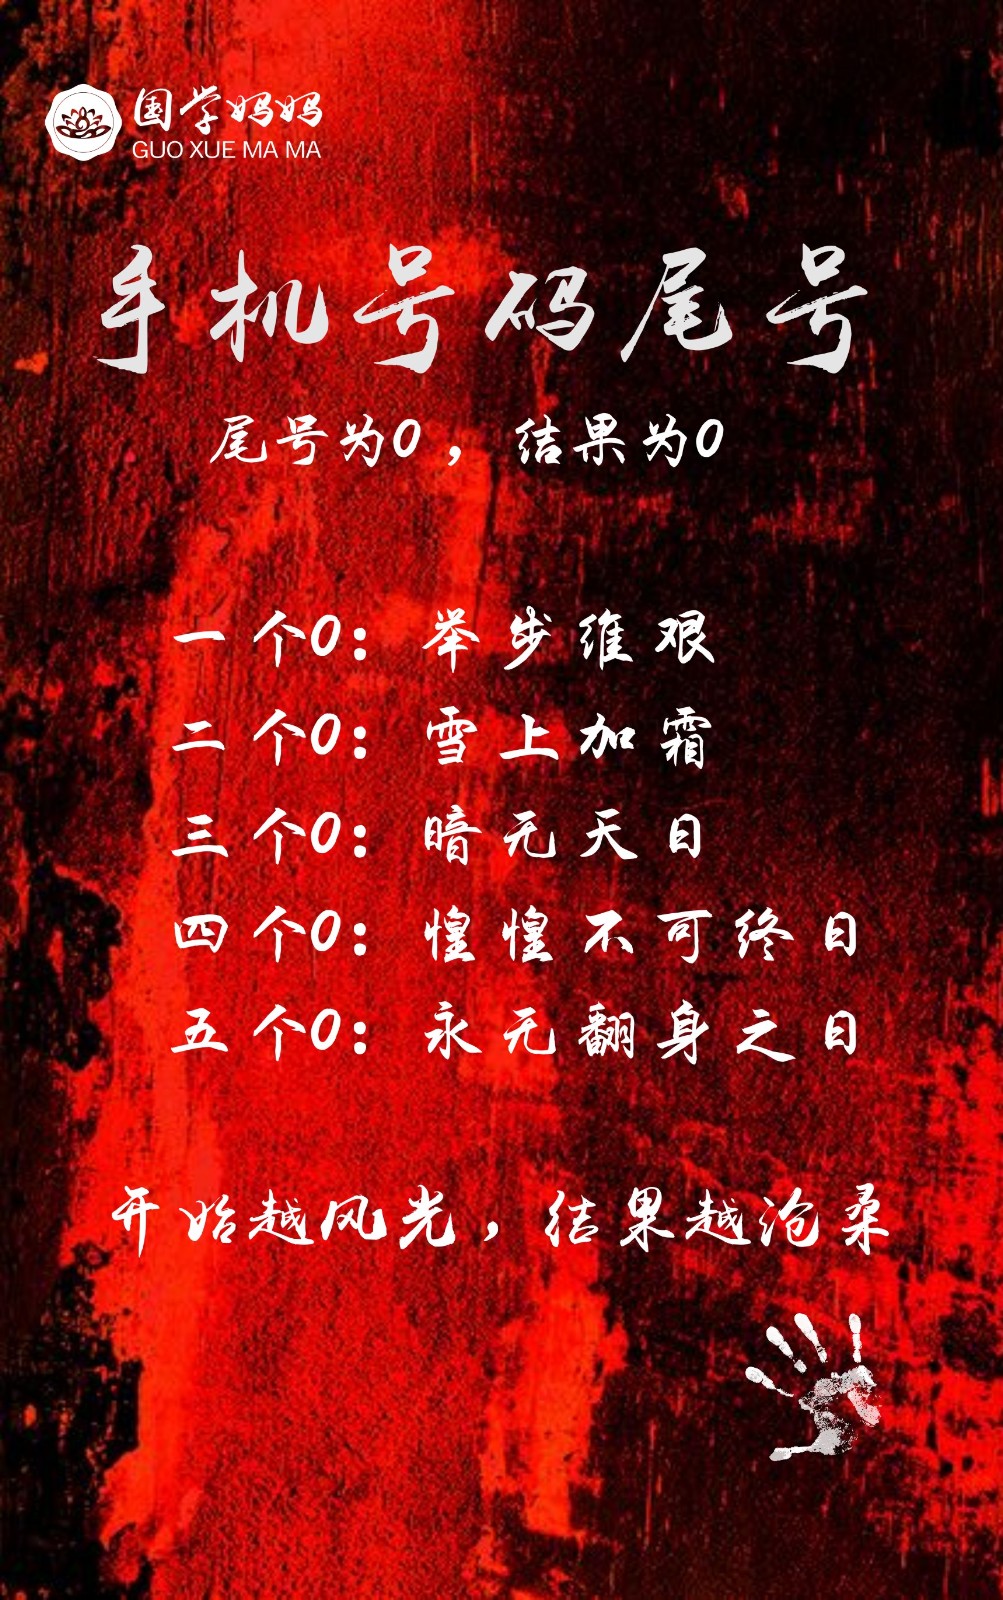 国学妈妈
GUO XUE MA MA
手机号码尾号
尾号为0，结果为0
一个0：举步维艰
二个0：雪上加霜
三个0：暗无天日
四个0：惶惶不可终日
五个0：永无翻身之日
开始越风光，结果越沧桑